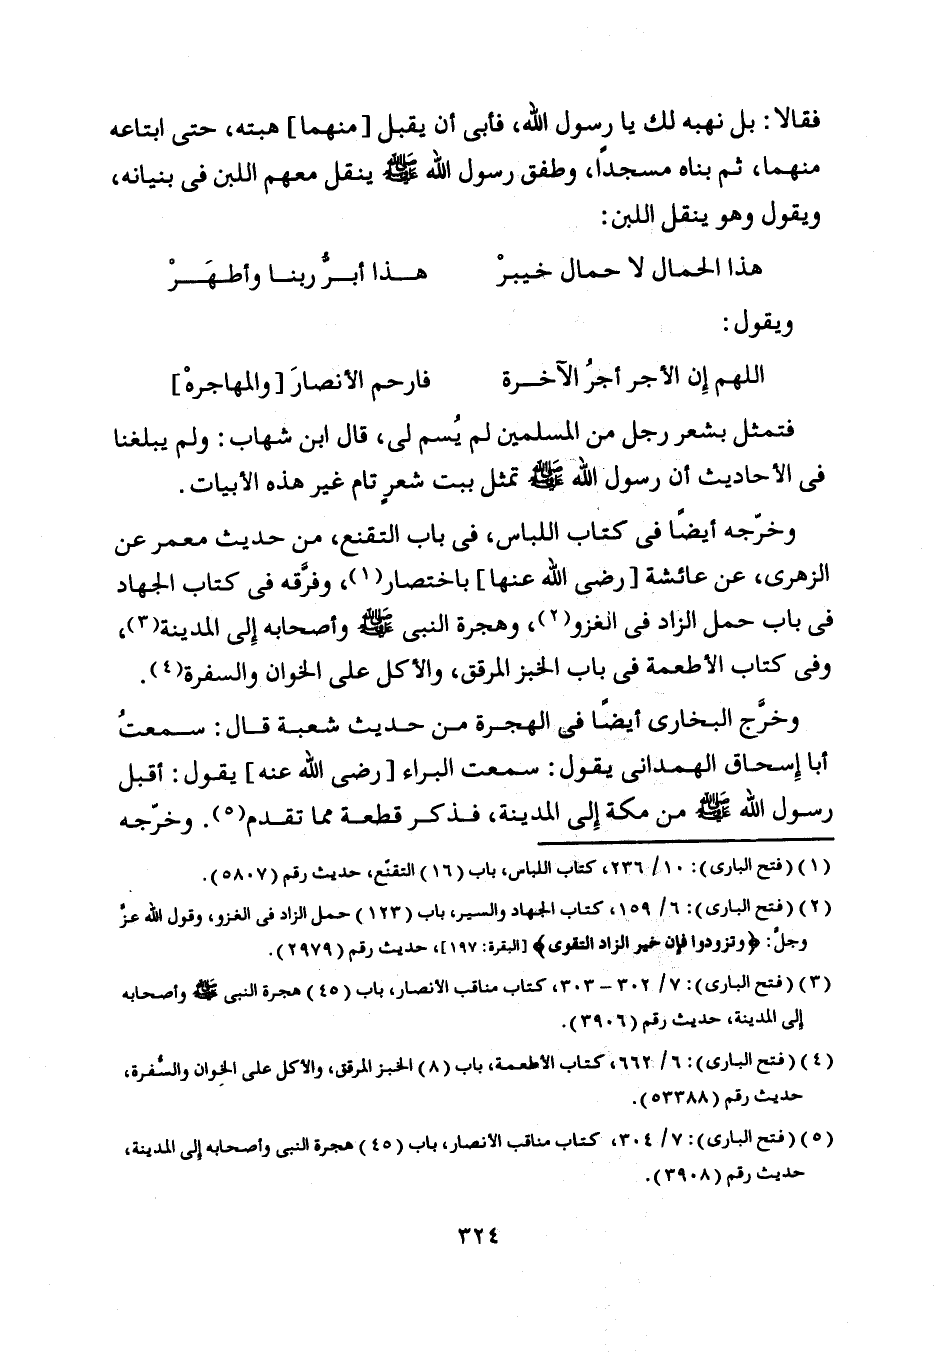 فقالا: بل نهبه لك يا رسول الله، فأبى أن يقبل [منهما] هبته، حتى ابتاعه
منهما، ثم بناه مسجدًا، وطفق رسول الله ﷺ ينقل معهم اللبن فى بنيانه،
ويقول وهو ينقل اللبن:
هذا الحمال لا حمال خيبرْ هـــذا أبـــرُّ ربنـــا وأطـهَـــرْ
ويقول:
اللهم إن الأجر أجرُ الآخـــرة فارحم الأنصارَ [والمهاجرهْ]
فتمثل بشعر رجل من المسلمين لم يُسم لى، قال ابن شهاب: ولم يبلغنا
فى الأحاديث أن رسول الله ﷺ تمثل ببت شعرٍ تام غير هذه الأبيات.
وخرّجه أيضًا فى كتاب اللباس، فى باب التقنع، من حديث معمر عن
الزهرى، عن عائشة [رضى الله عنها] باختصار(١)، وفرَّقه فى كتاب الجهاد
فى باب حمل الزاد فى الغزو(٢)، وهجرة النبى ﷺ وأصحابه إلى المدينة(٣)،
وفى كتاب الأطعمة فى باب الخبز المرقق، والأكل على الخوان والسفرة(٤).
وخرَّج البخارى أيضًا فى الهجرة من حديث شعبة قال: سمعتُ
أبا إسحاق الهمدانى يقول: سمعت البراء [رضى الله عنه] يقول: أقبل
رسول الله ﷺ من مكة إلى المدينة، فذكر قطعة مما تقدم(٥). وخرّجه
(١) (فتح البارى): ١٠/ ٢٣٦، كتاب اللباس، باب (١٦) التقنّع، حديث رقم (٥٨٠٧).
(٢) (فتح البارى): ٦/ ١٥٩، كتاب الجهاد والسير، باب (١٢٣) حمل الزاد فى الغزو، وقول الله عزَّ
وجلَّ: ﴿وتزودوا فإن خير الزاد التقوى﴾ [البقرة: ١٩٧]، حديث رقم (٢٩٧٩).
(٣) (فتح البارى): ٧/ ٣٠٢ – ٣٠٣، كتاب مناقب الأنصار، باب (٤٥) هجرة النبى ﷺ وأصحابه
إلى المدينة، حديث رقم (٣٩٠٦).
(٤) (فتح البارى): ٦/ ٦٦٢، كتاب الأطعمة، باب (٨) الخبز المرقق، والأكل على الخوان والسُّفرة،
حديث رقم (٥٣٣٨٨).
(٥) (فتح البارى): ٧/ ٣٠٤، كتاب مناقب الأنصار، باب (٤٥) هجرة النبى وأصحابه إلى المدينة،
حديث رقم (٣٩٠٨).
٣٢٤